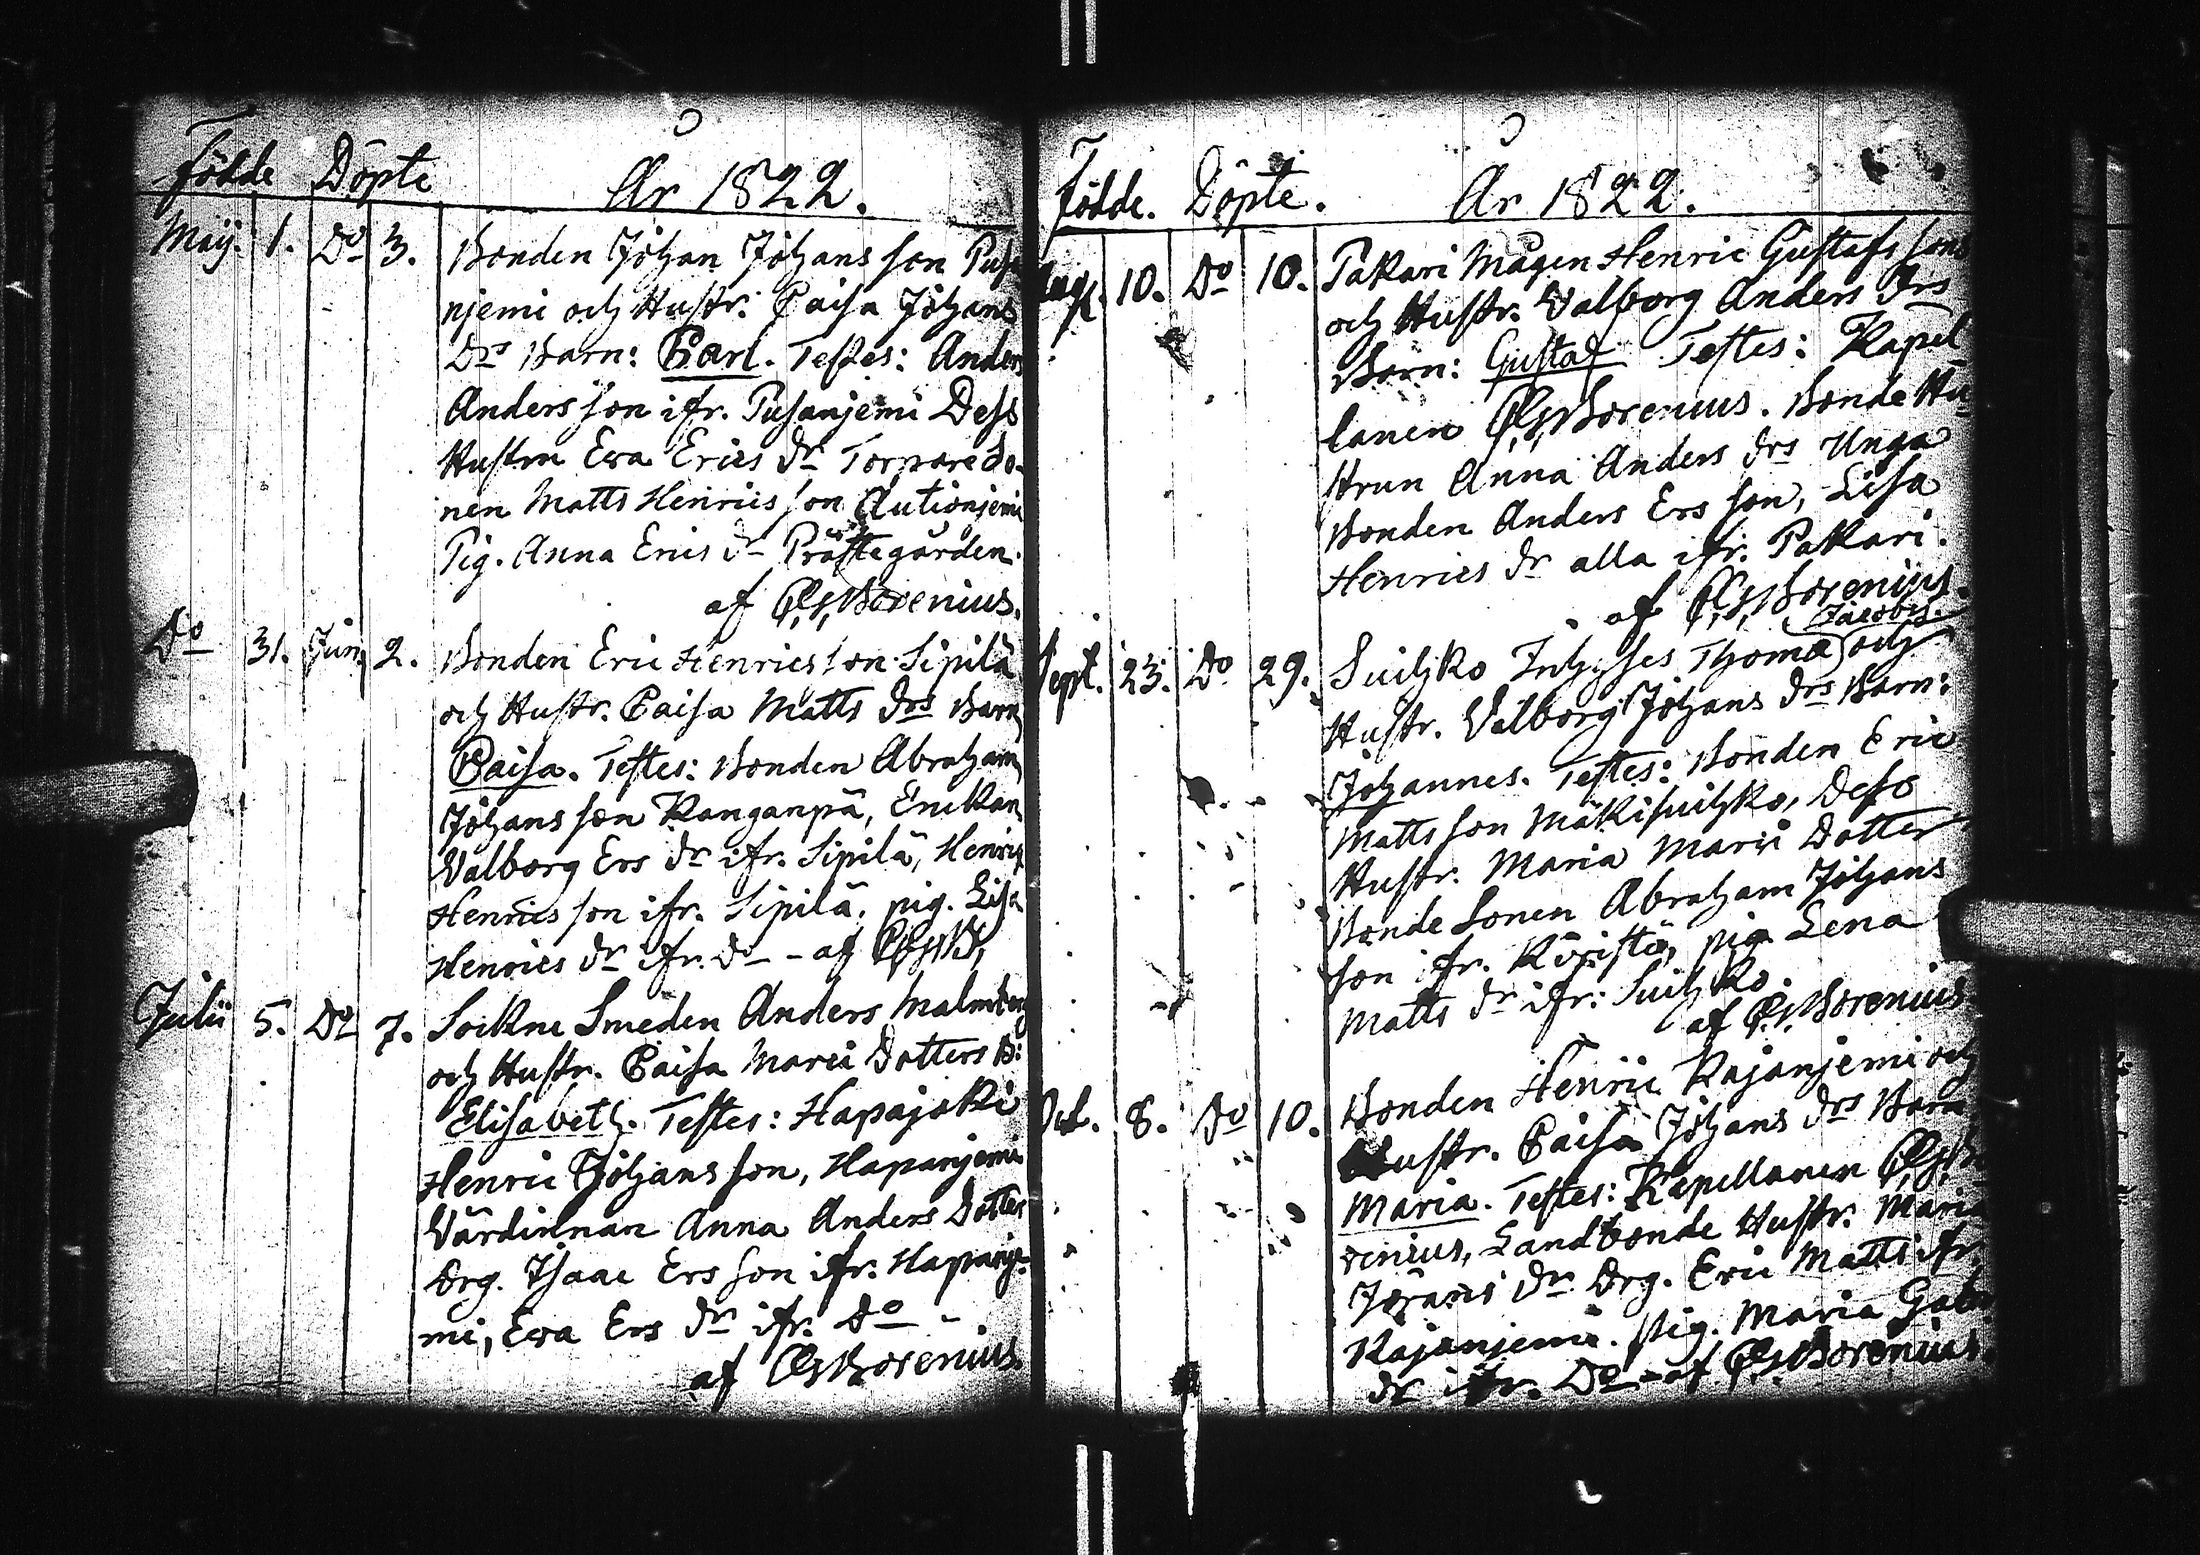 Födde Döpte År 1822.
Maij. 1. Do 3. Bonden Johan Johans son Pusa
njemi och Hustr: Caisa Johans
Drs Barn: Carl. Testes: Anders
Anders son ifr. Pusanjemi Dess
Hustru Ewa Erics dr Torpare So-
nen Matts Henrics son Autionjemi
Pig. Anna Erics dr Prästegården.
af C.G. Borenius.
Do 31. Jun. 2. Bonden Eric Henrics son Sipilä
och Hustr. Caisa Matts drs Barn
Caisa. Testes: Bonden Abraham
Johans son Kanganpä, Enckan
Walborg Ers dr ifr. Sipilä, Henric
Henrics son ifr. Sipilä. pig. Lisa
Henrics dr ifr. do - af C.G.B.
Julii 5. Do 7. Sockne Smeden Anders Malmberg
och Hustr. Caisa Marci Dotters B:
Elisabeth. Testes: Hapajoki
Henric Johans son, Hapanjemi
Värdinnan Anna Anders Dotter
Drg. Isaac Ers son ifr. Hapanje-
mi, Ewa Ers dr ifr. Do -
af C.G. Borenius.
Födde. Döpte. År 1822.
Aug. 10. Do 10. Pakari Mågen Henric Gustafs sons
och Hustr. Valborg Anders Drs
Barn: Gustaf Testes: Kapel
lanen C.G. Borenius. Bonde Hu-
strun Anna Anders drs Unga
Bonden Anders Ers son, Lisa
Henrics dr alla ifr. Pakari.
af C.G. Borenius.
Jacobs
Sept. 23. Do 29. Suihko Inhyses Thoma och
Hustr. Valborg Johans drs Barn:
Johannes. Testes: Bonden Eric
Matts son Mäkisuihko, Dess
Hustr. Maria Marci Dotter
Bonde Sonen Abraham Johans
son ifr. Köristö, pig Lena
Matts dr ifr: Suihko.
af C.G. Borenius
Oct. 8. Do 10. Bonden Henric Kajanjemi och
Hustr. Caisa Johans drs Barn
Maria. Testes: Kapellanen C.G. Bo
renius, Landbonde Hustr. Maria
Jörans dr Drg. Eric Matts ifr.
Kajanjemi. pig. Maria Gabr
dr ifr. Do - af C.G. Borenius.